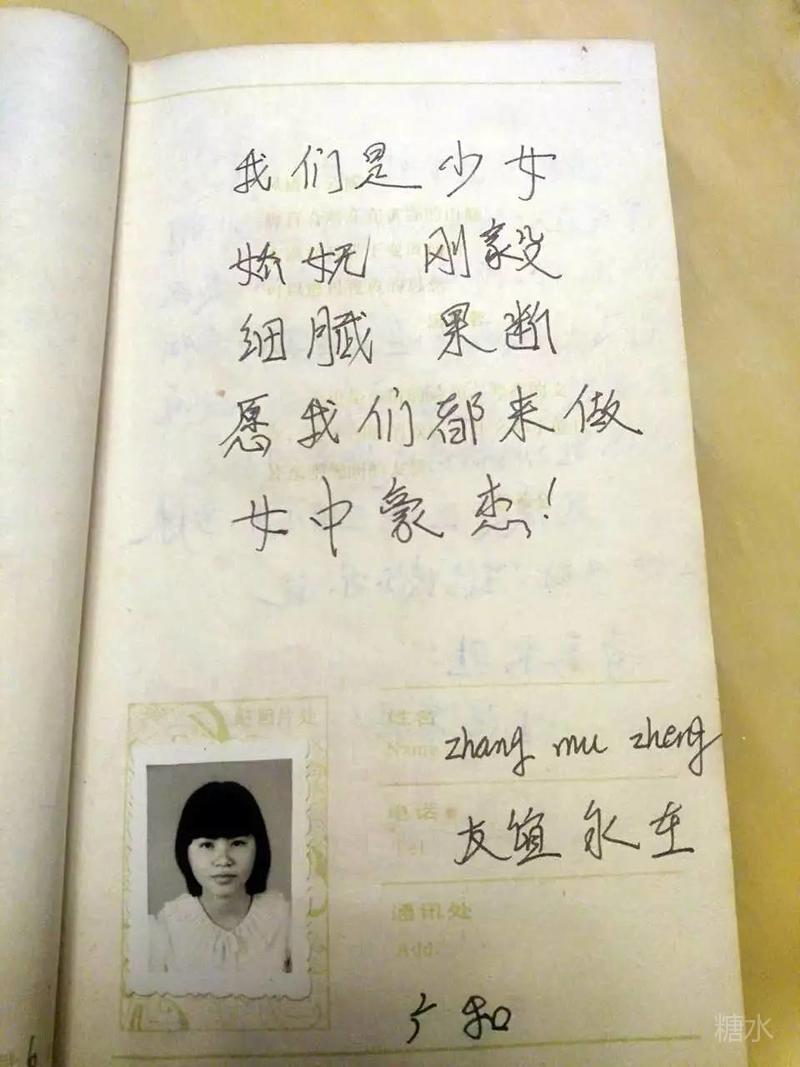 我们是少女
娇妩 刚毅
细腻 果断
愿我们都来做
女中豪杰!
贴照片处
姓名
Name
zhang mu zheng
电话
Tel
友谊永在
通讯处
Add.
广和
糖水
6